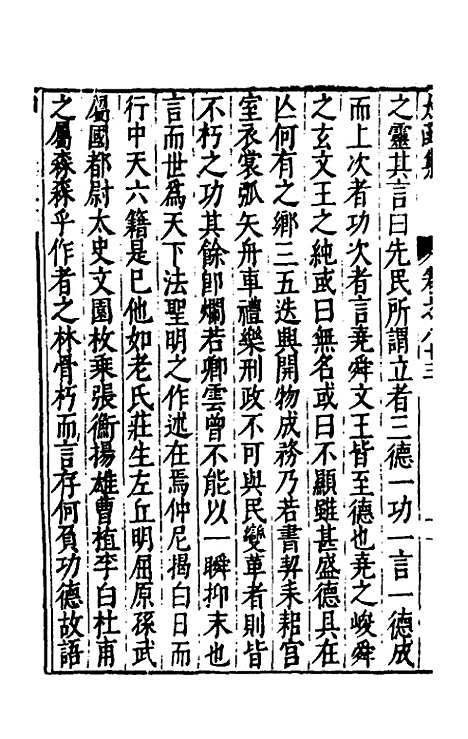 之靈其言曰先民所謂立者三德一功一言一德成
而上次者功次者言堯舜文王皆至德也堯之峻舜
之玄文王之純或曰無名或曰不顯雖甚盛德具在
亾何有之鄉三五迭興開物成務乃若書契耒耜宮
室衣裳弧矢舟車禮樂刑政不可與民變革者則皆
不朽之功其餘卽爛若卿雲曾不能以一瞬抑末也
言而世爲天下法聖明之作述在焉仲尼揭白日而
行中天六籍是巳他如老氏莊生左丘明屈原孫武
屬國都尉太史文園枚乘張衡揚雄曹植李白杜甫
之屬森森乎作者之林骨朽而言存何負功德故語